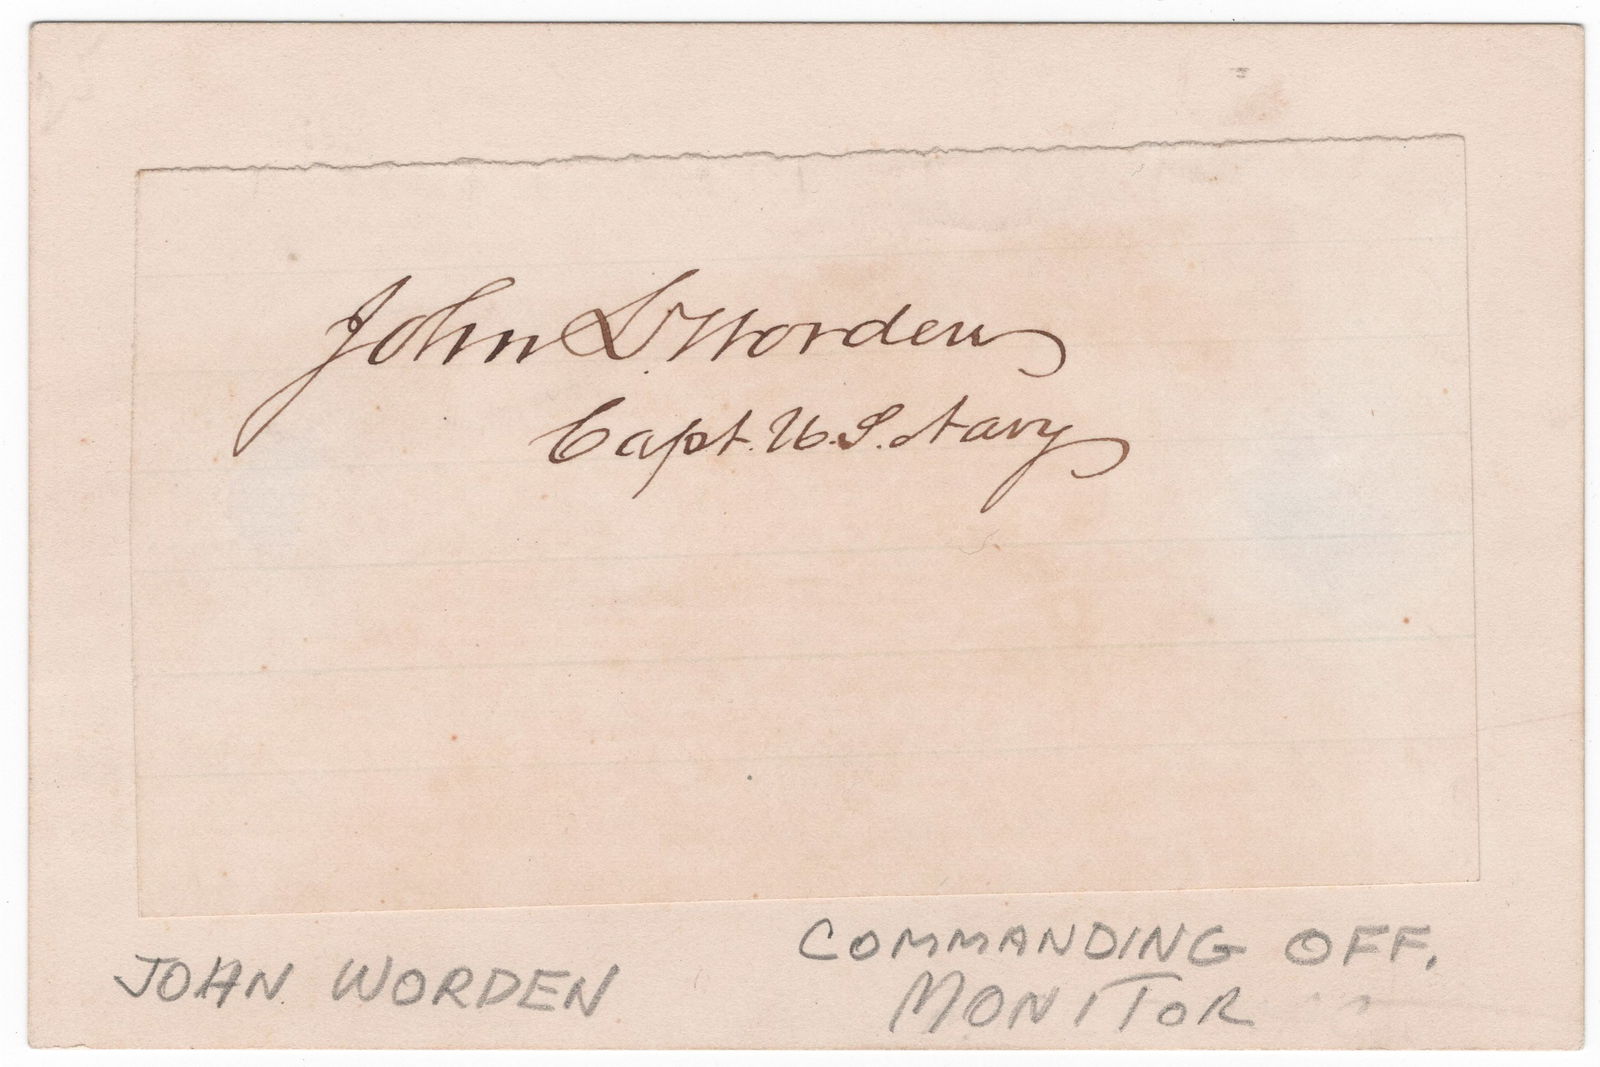 John L. Worden
Capt. U.S. Navy
JOHN WORDEN
COMMANDING OFF.
MONITOR